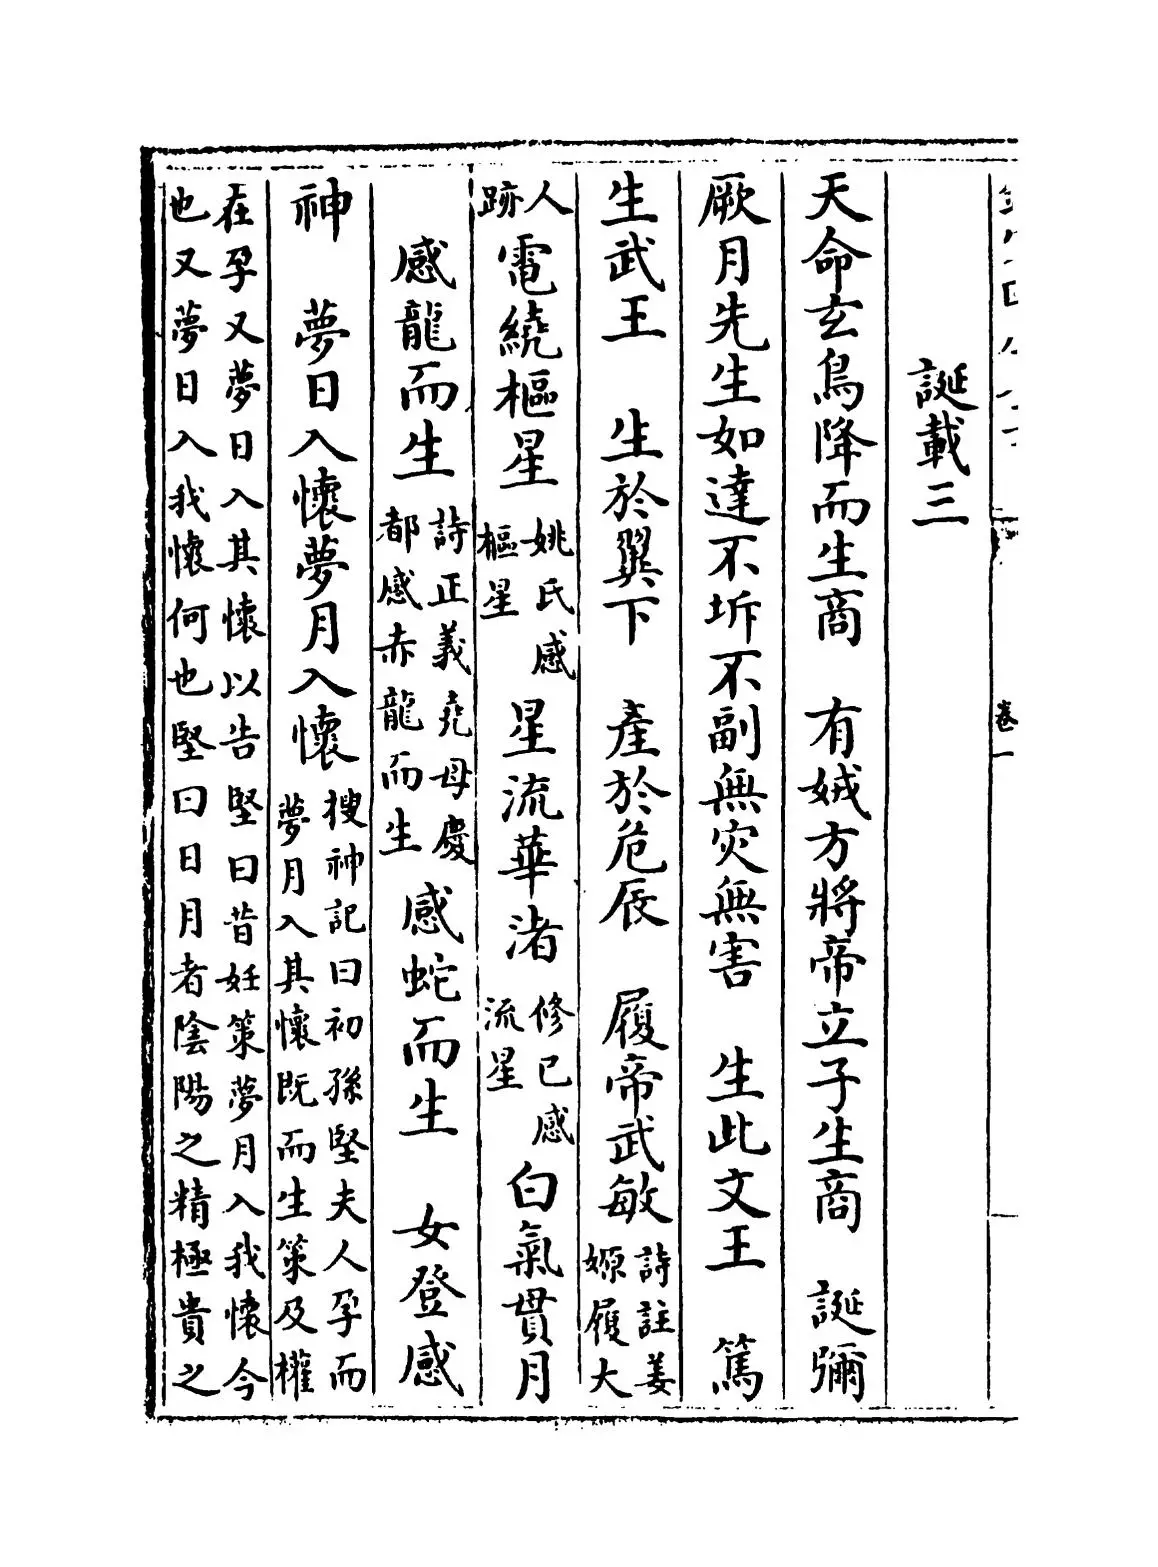 卷一
誕載三
天命玄鳥降而生商　有娀方將帝立子生商　誕彌
厥月先生如達不坼不副無灾無害　生此文王　篤
生武王　生於翼下　產於危辰　履帝武敏詩註姜嫄履大
人跡電繞樞星姚氏感樞星星流華渚修已感流星白氣貫月
感龍而生詩正義堯母慶都感赤龍而生感蛇而生　女登感
神　夢日入懷夢月入懷搜神記曰初孫堅夫人孕而夢月入其懷既而生策及權
在孕又夢日入其懷以告堅曰昔妊策夢月入我懷今
也又夢日入我懷何也堅曰日月者陰陽之精極貴之